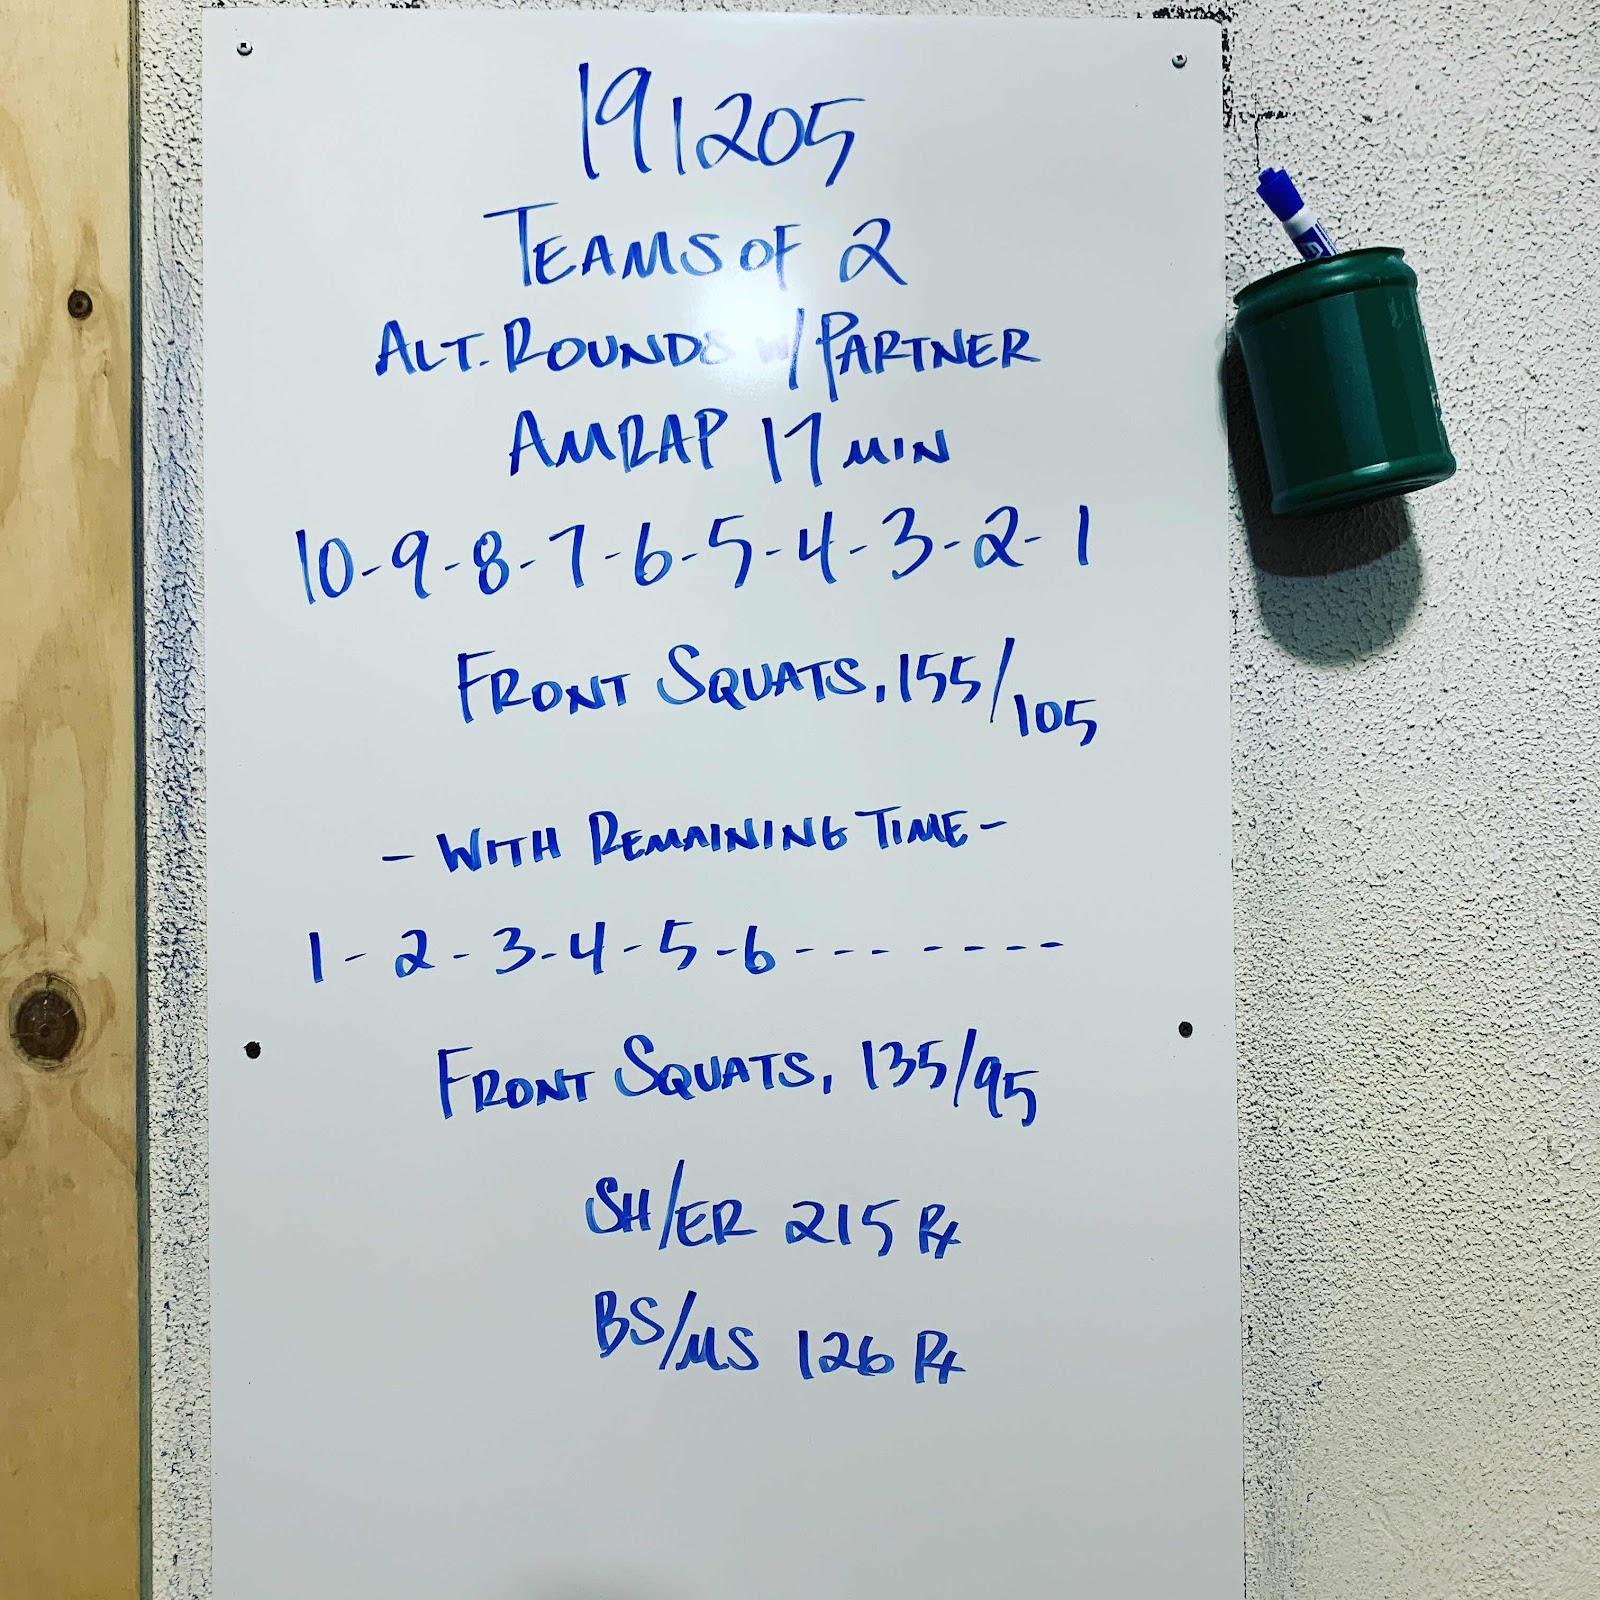 191205
TEAMS OF 2
ALT. ROUNDS W/ PARTNER
AMRAP 17 MIN
10-9-8-7-6-5-4-3-2-1
FRONT SQUATS, 155/105
- WITH REMAINING TIME -
1-2-3-4-5-6-------
FRONT SQUATS, 135/95
SH/ER 215 Rx
BS/MS 126 Rx